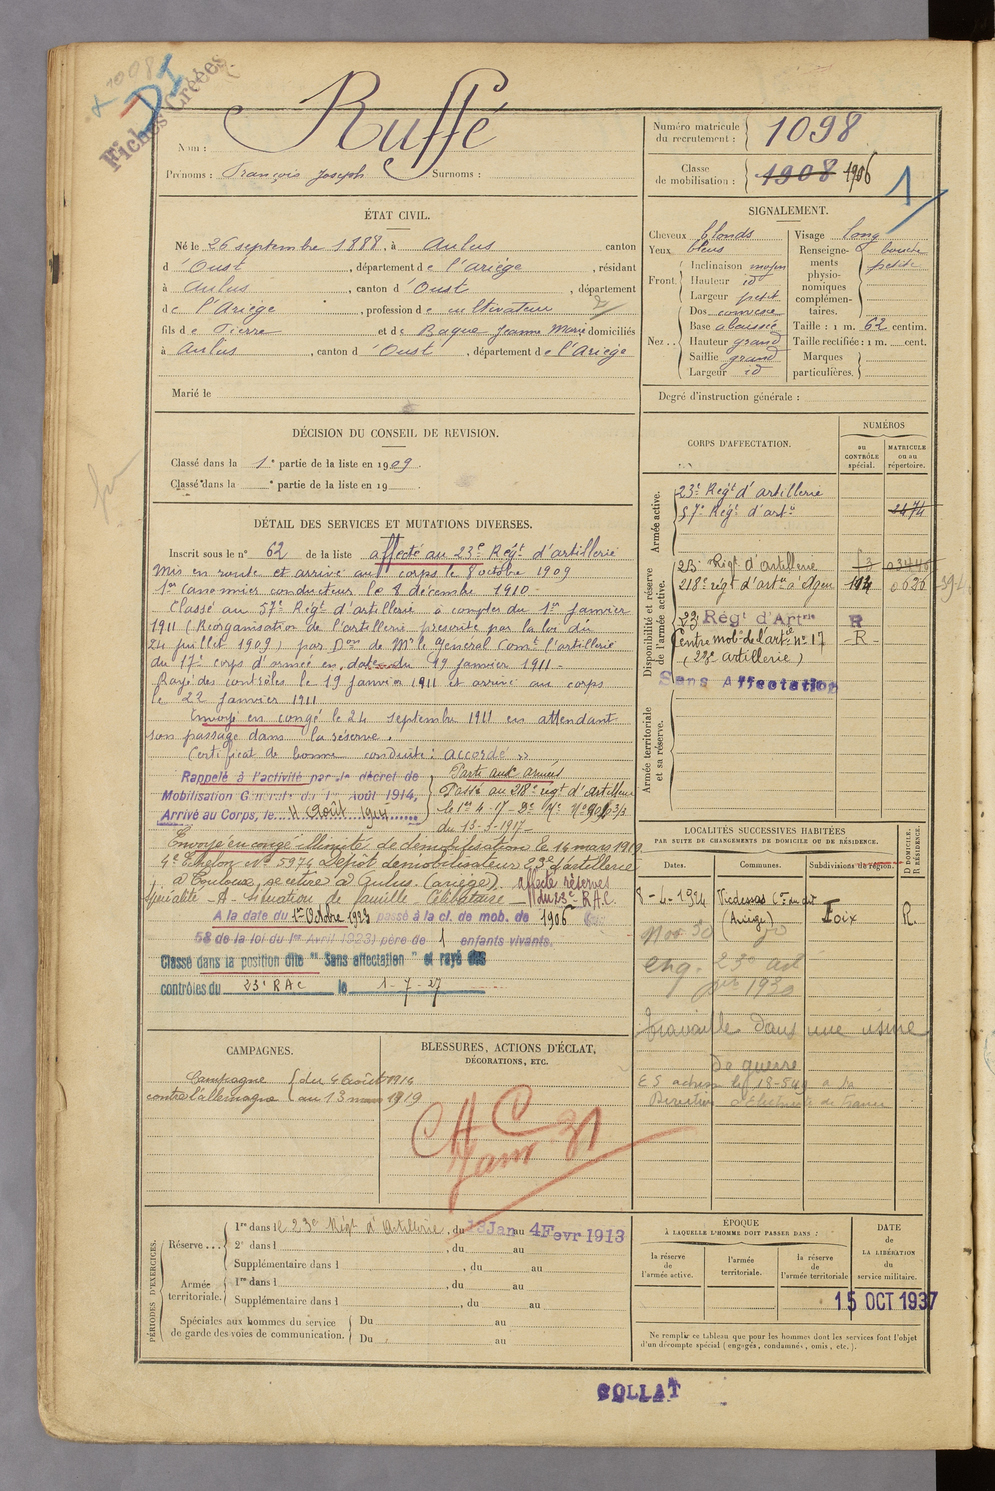 Fiches Créées
Nom : Ruffé
Prénoms : François Joseph Surnoms :
Numéro matricule du recrutement : 1098
Classe de mobilisation : 1908 1906
1
ÉTAT CIVIL.
Né le 26 septembre 1888, à Aulus canton
d'Oust, département de l'Ariège, résidant
à Aulus, canton d'Oust, département
de l'Ariège, profession de cultivateur
fils de Pierre et de Baque Jeanne Marie domiciliés
à Aulus, canton d'Oust, département de l'Ariège
Marié le
SIGNALEMENT.
Cheveux blonds
Yeux bleus
Front. Inclinaison moyen
Hauteur id
Largeur petit
Nez.. Dos convexe
Base abaissée
Hauteur grand
Saillie grand
Largeur id
Visage long
Renseignements physionomiques complémentaires. bouche petite
Taille : 1 m. 62 centim.
Taille rectifiée : 1 m. cent.
Marques particulières.
Degré d'instruction générale :
DÉCISION DU CONSEIL DE REVISION.
Classé dans la 1e partie de la liste en 1909.
Classé dans la e partie de la liste en 19
DÉTAIL DES SERVICES ET MUTATIONS DIVERSES.
Inscrit sous le n° 62 de la liste affecté au 23e Régt d'artillerie
Mis en route et arrivé au corps le 8 octobre 1909
1er canonnier conducteur le 8 décembre 1910-
Classé au 57e Régt d'artillerie à compter du 1er janvier
1911 (Reorganisation de l'artillerie prescrite par la loi du
24 juillet 1909) par Don de Mr le Général Comt l'artillerie
du 17e corps d'armée en date du 19 janvier 1911-
Rayé des contrôles le 19 janvier 1911 et arrivé au corps
le 22 janvier 1911
Envoyé en congé le 24 septembre 1911 en attendant
son passage dans la réserve.
Certificat de bonne conduite : accordé »
Rappelé à l'activité par le décret de
Mobilisation Générale du 1er Août 1914,
Arrivé au Corps, le 4 Août 1914
Parti aux armées
Passé au 218e régt d'artillerie
le 1er 4-17- De Me
du 13-3-1917-
Envoyé en congé illimité de démobilisation le 14 mars 1919
4e Echelon No 5974 Dépôt démobilisateur 23e d'artillerie
à Toulouse, se retire à Aulus (ariège). affecté réserves
Spécialité - A - Situation de famille - Célibataire - du 23e R.A.C.
A la date du 1er Octobre 1923 passé à la cl. de mob. de 1906
58 de la loi du 1er Avril 1923) père de 1 enfants vivants.
Classé dans la position dite "Sans affectation" et rayé des
contrôles du 23e RAC le 1-7-27
CORPS D'AFFECTATION.
NUMÉROS
au CONTRÔLE spécial.
MATRICULE ou au répertoire.
Armée active.
23e Régt d'artillerie
57e Régt d'artie 2474
Disponibilité et réserve de l'armée active.
23e Régt d'artillerie
218e régt d'artie à Agen
23 Régt d'Artrie R
Centre mobon de l'artie No 17 R
(23e artillerie)
Sans Affectation
Armée territoriale et sa réserve.
LOCALITÉS SUCCESSIVES HABITÉES
PAR SUITE DE CHANGEMENTS DE DOMICILE OU DE RÉSIDENCE.
Dates. Communes. Subdivisions de région. D DOMICILE. R RÉSIDENCE.
8-4-1924 Vicdessos (Ariège) Foix R.
Nov 30
travaille dans une usine
de guerre
CAMPAGNES.
Campagne contre l'allemagne { du 4 Août 1914 au 13 mars 1919
BLESSURES, ACTIONS D'ÉCLAT,
DÉCORATIONS, ETC.
Janv 31
PÉRIODES D'EXERCICES.
Réserve... 1re dans le 23e Régt d'Artillerie, du 13 Jan au 4 Fevr 1913
2e dans l , du au
Supplémentaire dans l , du au
Armée territoriale. 1re dans l , du au
Supplémentaire dans l , du au
Spéciales aux hommes du service de garde des voies de communication. Du au
Du au
ÉPOQUE
À LAQUELLE L'HOMME DOIT PASSER DANS :
la réserve de l'armée active.
l'armée territoriale.
la réserve de l'armée territoriale
DATE de LA LIBÉRATION du service militaire.
15 OCT 1937
Ne remplir ce tableau que pour les hommes dont les services font l'objet
d'un décompte spécial (engagés, condamnés, omis, etc.).
COLLAT